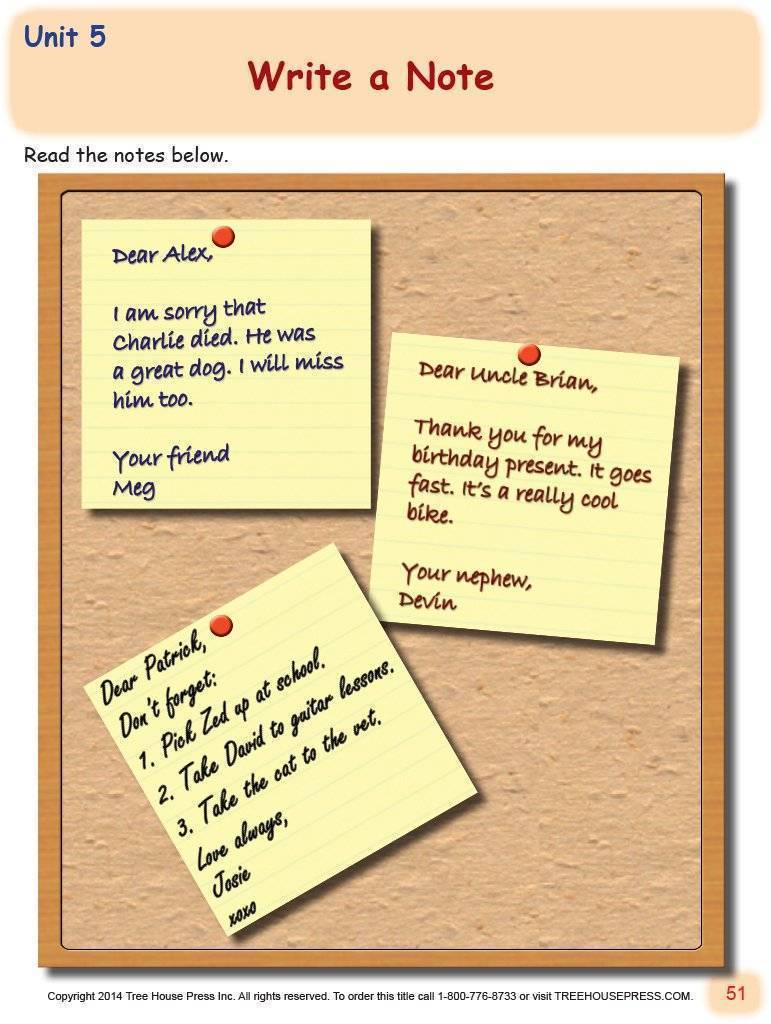 Unit 5
Write a Note
Read the notes below.
Dear Alex,
I am sorry that
Charlie died. He was
a great dog. I will miss
him too.
Your friend
Meg
Dear Uncle Brian,
Thank you for my
birthday present. It goes
fast. It's a really cool
bike.
Your nephew,
Devin
Dear Patrick,
Don't forget:
1. Pick Zed up at school.
2. Take David to guitar lessons.
3. Take the cat to the vet.
Love always,
Josie
xoxo
Copyright 2014 Tree House Press Inc. All rights reserved. To order this title call 1-800-776-8733 or visit TREEHOUSEPRESS.COM.
51